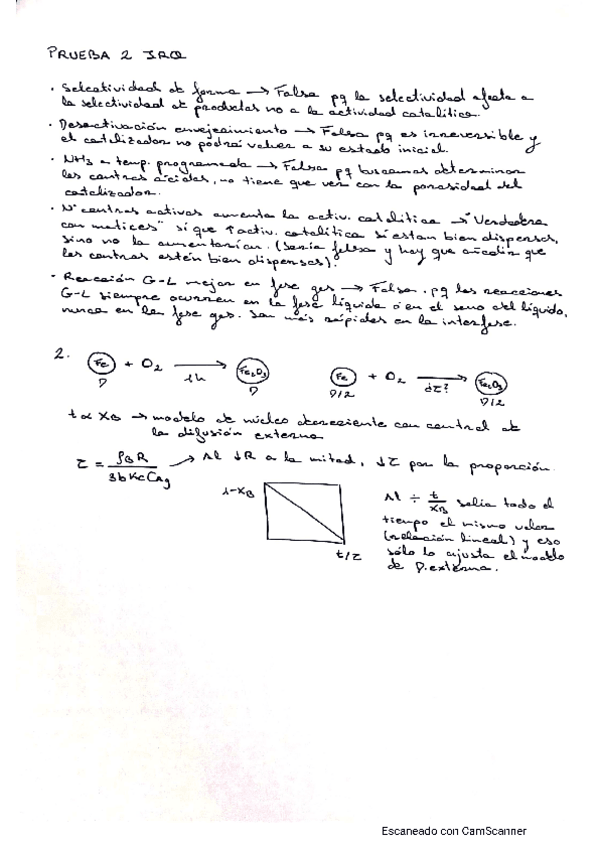 PRUEBA 2 IRQ
· Selectividad de forma → Falsa pq la selectividad afecta a
la selectividad de productos no a la actividad catalítica.
· Desactivación envejecimiento → Falsa pq es irreversible y
el catalizador no podrá volver a su estado inicial.
· NH3 a temp. programada → Falsa pq buscamos determinar
los centros ácidos, no tiene que ver con la porosidad del
catalizador.
· Nº centros activos aumenta la activ. catalítica → "Verdadera
con matices" sí que ↑activ. catalítica si están bien dispersos,
sino no la aumentarían. (Sería falsa y hay que añadir que
los centros estén bien dispersos).
· Reacción G-L mejor en fase gas → Falsa. pq las reacciones
G-L siempre ocurren en la fase líquida o en el seno del líquido,
nunca en la fase gas. Son más rápidas en la interfase.
2. Fe + O2 → Fe2O3 Fe + O2 → Fe2O3
D 1h D D/2 ¿τ? D/2
t α XB → modelo de núcleo decreciente con control de
la difusión externa
τ = ρB R / 3b Kc CAg → Al ↓R a la mitad, ↓τ por la proporción.
1-XB
t/τ
Al ÷ t/XB salía todo el
tiempo el mismo valor
(relación lineal) y eso
sólo lo ajusta el modelo
de D. externa.
Escaneado con CamScanner